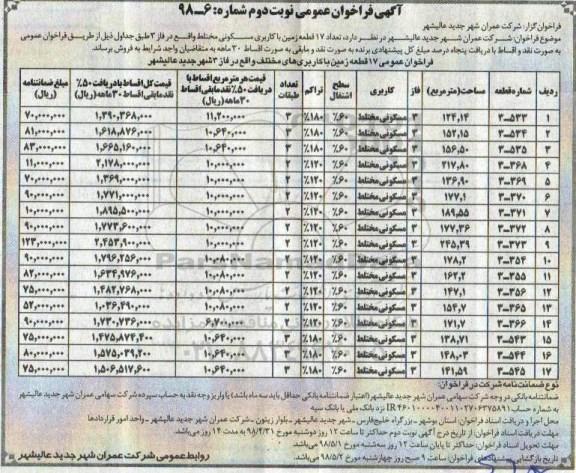 آگهی فراخوان عمومی نوبت دوم شماره: ۶-۹۸
فراخوان گزار: شرکت عمران شهر جدید عالیشهر
موضوع فراخوان: شرکت عمران شهر جدید عالیشهر در نظر دارد، تعداد ۱۷ قطعه زمین با کاربری مسکونی مختلط واقع در فاز ۳ طبق جداول ذیل از طریق فراخوان عمومی
به صورت نقد و اقساط با دریافت پنجاه درصد مبلغ کل پیشنهادی برنده به صورت نقد و مابقی به صورت اقساط ۳۰ ماهه به متقاضیان واجد شرایط به فروش برساند.
فراخوان عمومی ۱۷ قطعه زمین با کاربری های مختلف واقع در فاز ۳ شهر جدید عالیشهر
ردیف شماره قطعه مساحت (مترمربع) فاز کاربری سطح اشغال تراکم تعداد طبقات قیمت هر متر مربع اقساط با دریافت ۵۰٪ نقد مابقی اقساط ۳۰ ماهه (ریال) قیمت کل اقساط با دریافت ۵۰٪ نقد مابقی اقساط ۳۰ ماهه (ریال) مبلغ ضمانتنامه (ریال)
۱ ۵۳۳-۳ ۱۲۴,۱۴ ۳ مسکونی مختلط ۶۰٪ ۱۸۰٪ ۳ ۱۱,۲۰۰,۰۰۰ ۱,۳۹۰,۳۶۸,۰۰۰ ۷۰,۰۰۰,۰۰۰
۲ ۵۳۴-۳ ۱۵۲,۱۵ ۳ مسکونی مختلط ۶۰٪ ۱۸۰٪ ۳ ۱۰,۶۴۰,۰۰۰ ۱,۶۱۸,۸۷۶,۰۰۰ ۸۱,۰۰۰,۰۰۰
۳ ۵۳۵-۳ ۱۵۶,۵۰ ۳ مسکونی مختلط ۶۰٪ ۱۸۰٪ ۳ ۱۰,۶۴۰,۰۰۰ ۱,۶۶۵,۱۶۰,۰۰۰ ۸۳,۰۰۰,۰۰۰
۴ ۳۶۸-۳ ۲۱۷,۸۰ ۳ مسکونی مختلط ۶۰٪ ۱۲۰٪ ۲ ۱۰,۰۰۰,۰۰۰ ۲,۱۷۸,۰۰۰,۰۰۰ ۱۱,۰۰۰,۰۰۰
۵ ۳۶۹-۳ ۱۳۶,۹۰ ۳ مسکونی مختلط ۶۰٪ ۱۲۰٪ ۲ ۱۰,۰۰۰,۰۰۰ ۱,۳۶۹,۰۰۰,۰۰۰ ۷۰,۰۰۰,۰۰۰
۶ ۳۷۰-۳ ۱۷۷,۱ ۳ مسکونی مختلط ۶۰٪ ۱۲۰٪ ۲ ۱۰,۰۰۰,۰۰۰ ۱,۷۷۱,۰۰۰,۰۰۰ ۹۰,۰۰۰,۰۰۰
۷ ۳۷۱-۳ ۱۸۹,۵۵ ۳ مسکونی مختلط ۶۰٪ ۱۲۰٪ ۲ ۱۰,۰۰۰,۰۰۰ ۱,۸۹۵,۵۰۰,۰۰۰ ۱۰,۰۰۰,۰۰۰
۸ ۳۷۲-۳ ۱۷۷,۳۶ ۳ مسکونی مختلط ۶۰٪ ۱۲۰٪ ۲ ۱۰,۰۰۰,۰۰۰ ۱,۷۷۳,۶۰۰,۰۰۰ ۹۰,۰۰۰,۰۰۰
۹ ۳۷۳-۳ ۲۴۵,۳۹ ۳ مسکونی مختلط ۶۰٪ ۱۲۰٪ ۲ ۱۰,۰۰۰,۰۰۰ ۲,۴۵۳,۹۰۰,۰۰۰ ۱۲۳,۰۰۰,۰۰۰
۱۰ ۳۵۴-۳ ۱۷۸,۲ ۳ مسکونی مختلط ۶۰٪ ۱۲۰٪ ۲ ۱۰,۰۸۰,۰۰۰ ۱,۷۹۶,۲۵۶,۰۰۰ ۹۰,۰۰۰,۰۰۰
۱۱ ۳۵۵-۳ ۱۶۲,۲ ۳ مسکونی مختلط ۶۰٪ ۱۲۰٪ ۲ ۱۰,۰۸۰,۰۰۰ ۱,۶۳۴,۹۷۶,۰۰۰ ۸۲,۰۰۰,۰۰۰
۱۲ ۳۵۶-۳ ۱۴۷,۱ ۳ مسکونی مختلط ۶۰٪ ۱۲۰٪ ۲ ۱۰,۰۸۰,۰۰۰ ۱,۴۸۲,۷۶۸,۰۰۰ ۷۵,۰۰۰,۰۰۰
۱۳ ۳۶۵-۳ ۱۵۴,۷ ۳ مسکونی مختلط ۶۰٪ ۱۲۰٪ ۲ ۱,۰۳۶,۴۹۰,۰۰۰ ۵۲,۰۰۰,۰۰۰
۱۴ ۳۶۶-۳ ۱۷۱,۷ ۳ مسکونی مختلط ۶۰٪ ۱۲۰٪ ۲ ۱,۷۳۰,۷۳۶,۰۰۰ ۹۰,۰۰۰,۰۰۰
۱۵ ۵۴۳-۳ ۱۳۸,۷۱ ۳ مسکونی مختلط ۶۰٪ ۱۸۰٪ ۳ ۱۰,۶۴۰,۰۰۰ ۱,۴۷۵,۸۷۴,۴۰۰ ۷۵,۰۰۰,۰۰۰
۱۶ ۵۴۴-۳ ۱۴۸,۰۳ ۳ مسکونی مختلط ۶۰٪ ۱۸۰٪ ۳ ۱۰,۶۴۰,۰۰۰ ۱,۵۷۵,۰۳۹,۲۰۰ ۸۰,۰۰۰,۰۰۰
۱۷ ۵۴۵-۳ ۱۴۱,۵۹ ۳ مسکونی مختلط ۶۰٪ ۱۸۰٪ ۳ ۱۰,۶۴۰,۰۰۰ ۱,۵۰۶,۵۱۷,۶۰۰ ۷۵,۰۰۰,۰۰۰
نوع ضمانت نامه شرکت در فراخوان:
ضمانتنامه بانکی در وجه شرکت سهامی عمران شهر جدید عالیشهر (اعتبار ضمانتنامه بانکی حداقل باید سه ماه باشد) یا واریز وجه نقد به حساب سپرده شرکت سهامی عمران شهر جدید عالیشهر
به شماره حساب IR ۴۶۰۱۰۰۰۰۴۰۰۱۱۰۲۷۰۶۳۷۵۸۹۱ نزد بانک ملی یا بانک سپه
محل اجرا و دریافت اسناد فراخوان: استان بوشهر - بزرگراه خلیج فارس - شهر جدید عالیشهر - بلوار زیتون - شرکت عمران شهر جدید عالیشهر - واحد امور قراردادها
مهلت دریافت اسناد فراخوان: از تاریخ درج آگهی نوبت دوم حداکثر تا ساعت ۱۲ روز دوشنبه مورخ ۹۸/۴/۳۱ به مدت ۱۴ روز می باشد.
مهلت تحویل اسناد فراخوان: حداکثر تا پایان ساعت ۱۲ روز سه شنبه مورخ ۹۸/۵/۱ می باشد.
تاریخ بازگشایی پیشنهادهای فراخوان: ساعت ۹ صبح روز چهارشنبه مورخ ۹۸/۵/۲ می باشد.
روابط عمومی شرکت عمران شهر جدید عالیشهر